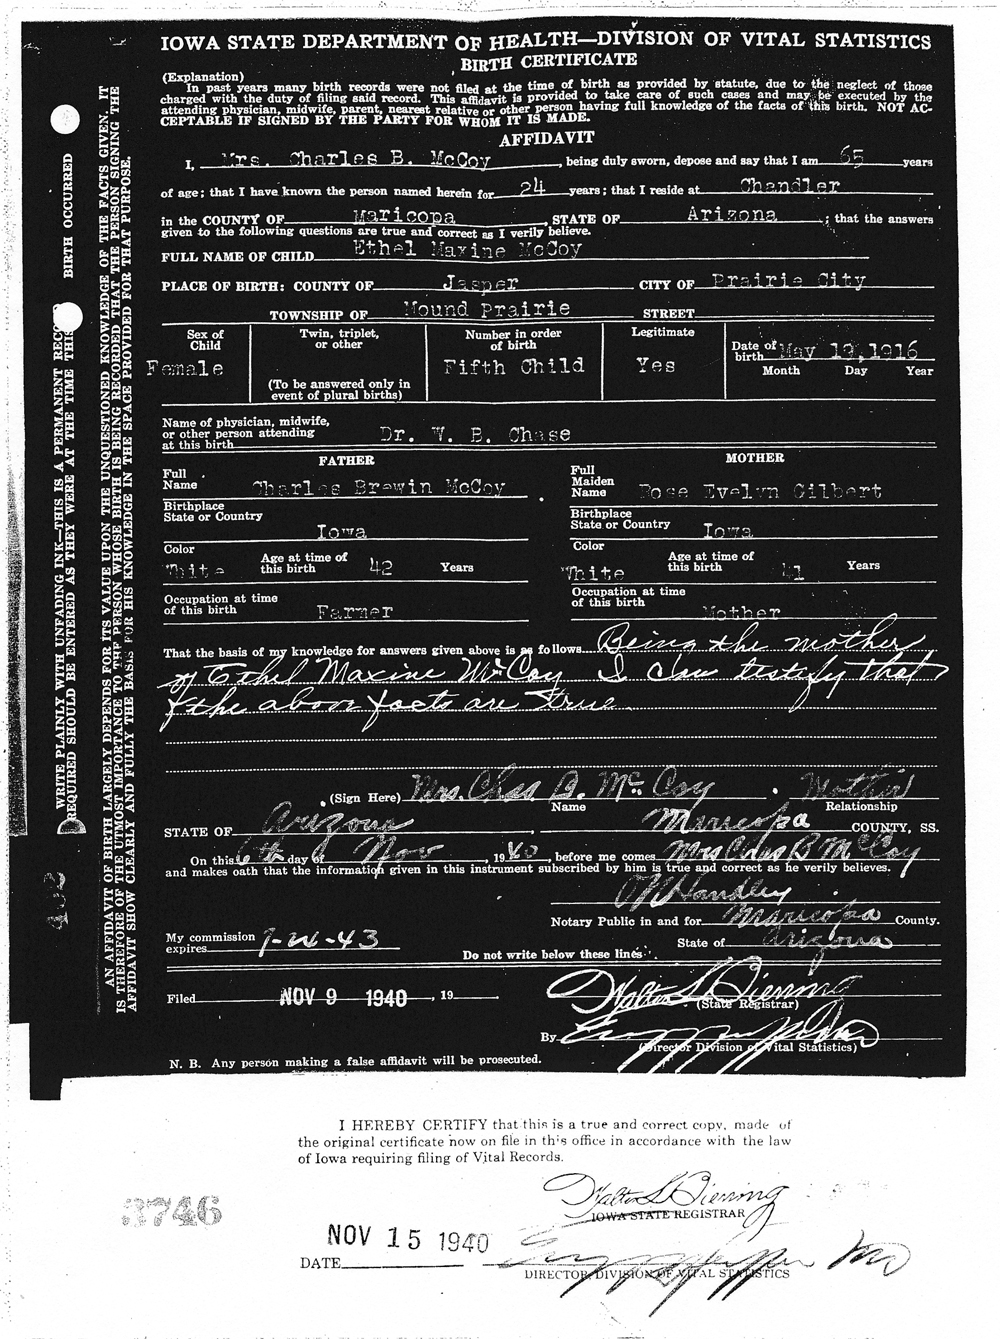 IOWA STATE DEPARTMENT OF HEALTH—DIVISION OF VITAL STATISTICS
BIRTH CERTIFICATE
(Explanation)
In past years many birth records were not filed at the time of birth as provided by statute, due to the neglect of those
charged with the duty of filing said record. This affidavit is provided to take care of such cases and may be executed by the
attending physician, midwife, parent, nearest relative or other person having full knowledge of the facts of this birth. NOT AC-
CEPTABLE IF SIGNED BY THE PARTY FOR WHOM IT IS MADE.
AFFIDAVIT
I, Mrs. Charles B. McCoy, being duly sworn, depose and say that I am 65 years
of age; that I have known the person named herein for 24 years; that I reside at Chandler
in the COUNTY OF Maricopa, STATE OF Arizona; that the answers
given to the following questions are true and correct as I verily believe.
FULL NAME OF CHILD Ethel Maxine McCoy
PLACE OF BIRTH: COUNTY OF Jasper CITY OF Prairie City
TOWNSHIP OF Mound Prairie STREET
Sex of Child Female
Twin, triplet, or other
(To be answered only in event of plural births)
Number in order of birth Fifth Child
Legitimate Yes
Date of birth May 19, 1916
Month Day Year
Name of physician, midwife,
or other person attending
at this birth Dr. W. B. Chase
FATHER
Full Name Charles Brewin McCoy
Birthplace
State or Country Iowa
Color White
Age at time of this birth 42 Years
Occupation at time
of this birth Farmer
MOTHER
Full Maiden Name Rose Evelyn Gilbert
Birthplace
State or Country Iowa
Color White
Age at time of this birth 41 Years
Occupation at time
of this birth Mother
That the basis of my knowledge for answers given above is as follows Being the mother
of Ethel Maxine McCoy I can testify that
the above facts are true.
(Sign Here) Mrs. Chas B. McCoy Mother
Name Relationship
STATE OF Arizona Maricopa COUNTY, SS.
On this 6th day of Nov, 1940, before me comes Mrs Chas B McCoy
and makes oath that the information given in this instrument subscribed by him is true and correct as he verily believes.
Handley
Notary Public in and for Maricopa County.
My commission
expires 7-24-43
State of Arizona
Do not write below these lines
Filed NOV 9 1940, 19
Walter L. Bierring
(State Registrar)
By
(Director Division of Vital Statistics)
N. B. Any person making a false affidavit will be prosecuted.
BIRTH OCCURRED
WRITE PLAINLY WITH UNFADING INK—THIS IS A PERMANENT RECO
REQUIRED SHOULD BE ENTERED AS THEY WERE AT THE TIME THIS
AN AFFIDAVIT OF BIRTH LARGELY DEPENDS FOR ITS VALUE UPON THE UNQUESTIONED KNOWLEDGE OF THE FACTS GIVEN. IT
IS THEREFORE OF THE UTMOST IMPORTANCE TO THE PERSON WHOSE BIRTH IS BEING RECORDED THAT THE PERSON SIGNING THE
AFFIDAVIT SHOW CLEARLY AND FULLY THE BASIS FOR HIS KNOWLEDGE IN THE SPACE PROVIDED FOR THAT PURPOSE.
I HEREBY CERTIFY that this is a true and correct copy, made of
the original certificate now on file in this office in accordance with the law
of Iowa requiring filing of Vital Records.
Walter L. Bierring
IOWA STATE REGISTRAR
3746
NOV 15 1940
DATE
DIRECTOR, DIVISION OF VITAL STATISTICS